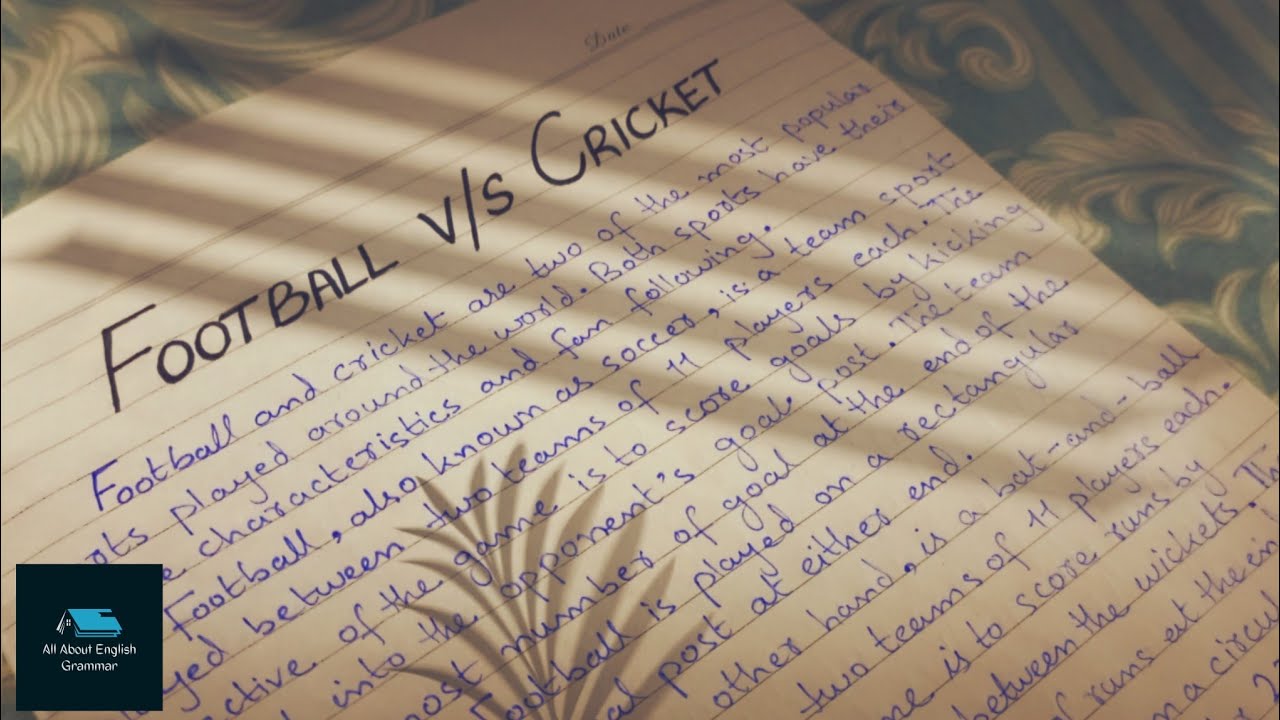 Date
FOOTBALL v/s CRICKET
Football and cricket are two of the most popular
orts played around the world. Both sports have their
e characteristics and fan following.
Football, also known as soccer, is a team sport
yed between two teams of 11 players each. The
ective of the game is to score goals by kicking
into the opponent's goal post. The team
most number of goal at the end of the
Football is played on a rectangular
al post at either end.
other hand, is a bat-and-ball
two teams of 11 players each.
me is to score runs by
between the wickets. Th
of runs at the
a circul
All About English
Grammar